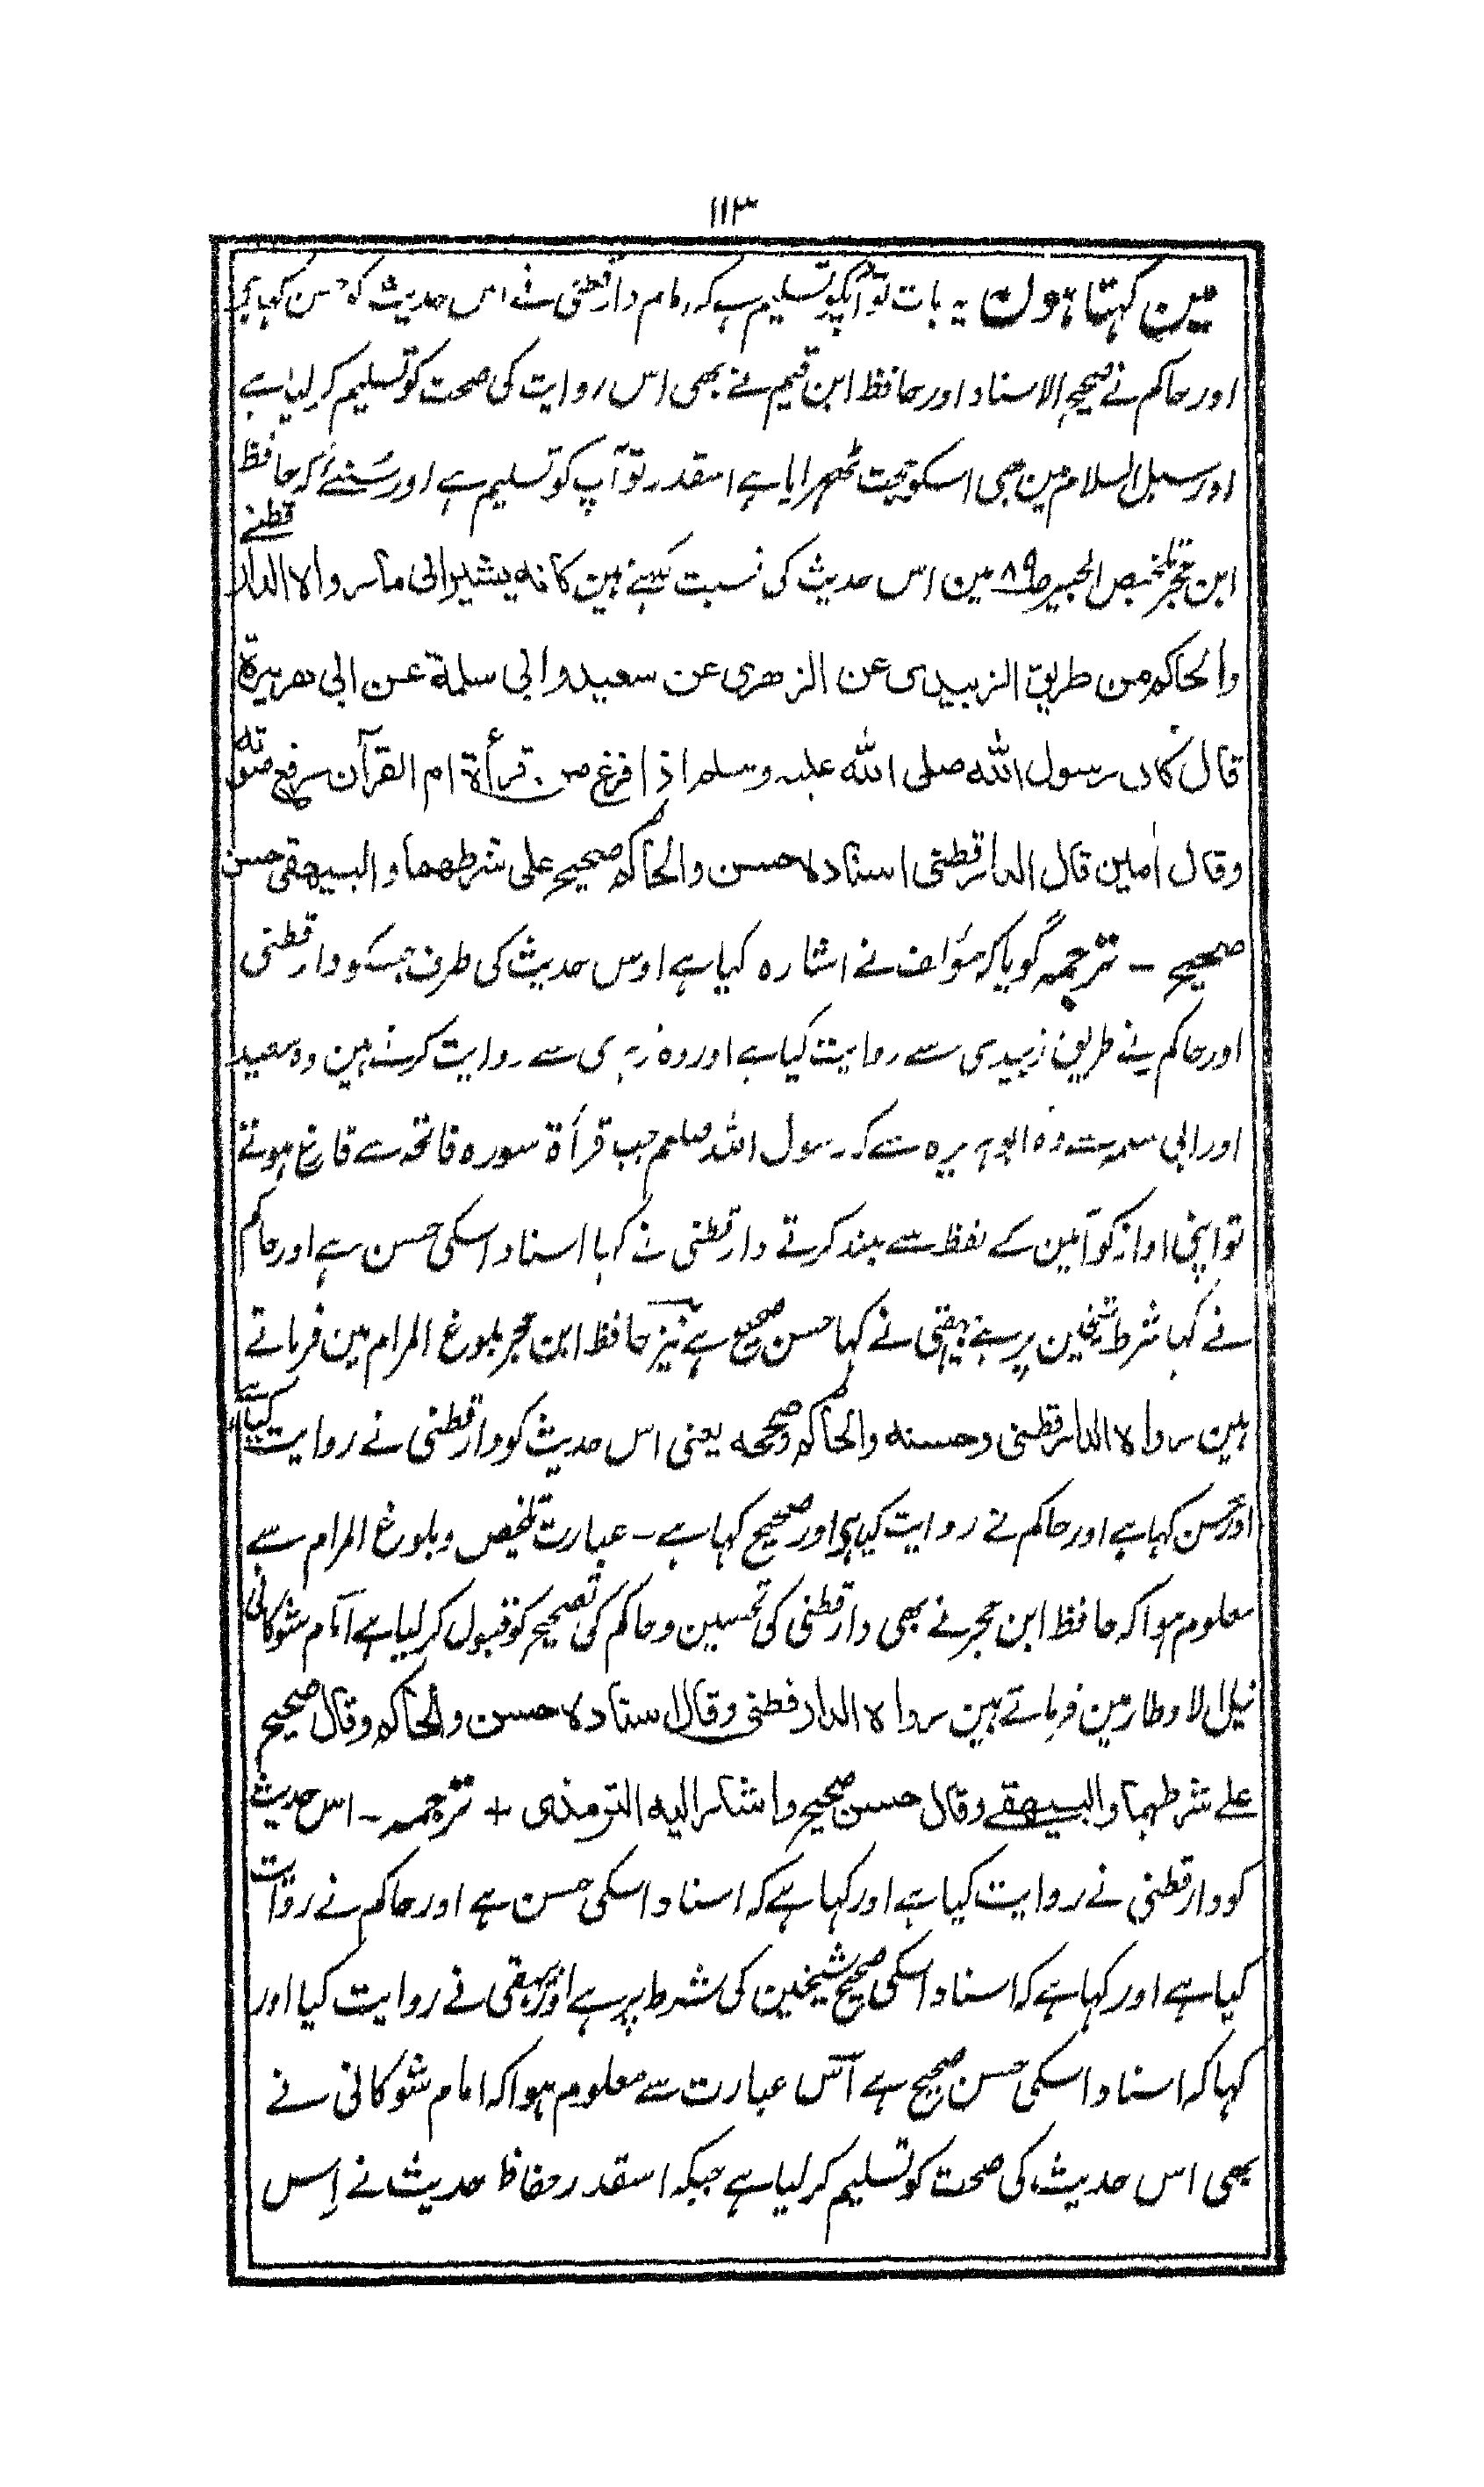 ١١٣
مین کہتا ہون یہ بات تو آپکو تسلیم ہے کہ امام دارقطنی نے اس حدیث کو حسن کہا ہے
اور حاکم نے صحیح الاسناد اور حافظ ابن قیم نے بھی اس روایت کی صحت کو تسلیم کر لیا ہے
اور سبل السلام مین بھی اسکو حجت ٹھہرایا ہے اسقدر تو آپ کو تسلیم ہے اور سُنئے کہ حافظ
ابن حجر تلخیص الحبیر ص۸۹ مین اس حدیث کی نسبت کہتے ہین کانه یشیر الی ما رواه الدارقطنے
والحاکم من طریق الزبیدی عن الزهری عن سعید وابی سلمة عن ابی هریرة
قال کان رسول الله صلی الله علیه وسلم اذا فرغ من قرأة ام القرآن رفع صوته
وقال اٰمین قال الدارقطنی اسناده حسن والحاکم صحیح علی شرطهما والبیهقی حسن
صحیح - ترجمہ گویا کہ مؤلف نے اشارہ کیا ہے اوس حدیث کی طرف جسکو دارقطنی
اور حاکم نے طریق زبیدی سے روایت کیا ہے اور وہ زہری سے روایت کرتے ہین وہ سعید
اور ابی سلمہ سے وہ ابوہریرہ سے کہ رسول اللہ صلعم جب قرأة سورہ فاتحہ سے فارغ ہوتے
تو اپنی اواز کو آمین کے لفظ سے بلند کرتے دارقطنی نے کہا اسناد اسکی حسن ہے اور حاکم
نے کہا شرط شیخین پر ہے بیہقی نے کہا حسن صحیح ہے نیز حافظ ابن حجر بلوغ المرام مین فرماتے
ہین رواه الدارقطنی وحسنه والحاکم وصححه یعنی اس حدیث کو دارقطنی نے روایت کیا ہے
اور حسن کہا ہے اور حاکم نے روایت کیا ہے اور صحیح کہا ہے - عبارت تلخیص و بلوغ المرام سے
معلوم ہوا کہ حافظ ابن حجر نے بھی دارقطنی کی تحسین و حاکم کی تصحیح کو قبول کر لیا ہے امام شوکانی
نیل الاوطار مین فرماتے ہین رواه الدارقطنی وقال اسناده حسن والحاکم وقال صحیح
علے شرطهما والبیهقے وقال حسن صحیح واشار الیه الترمذی + ترجمہ - اس حدیث
کو دارقطنی نے روایت کیا ہے اور کہا ہے کہ اسناد اسکی حسن ہے اور حاکم نے روایت
کیا ہے اور کہا ہے کہ اسناد اسکی صحیح شیخین کی شرط پر ہے اور بیہقی نے روایت کیا اور
کہا کہ اسناد اسکی حسن صحیح ہے اس عبارت سے معلوم ہوا کہ امام شوکانی نے
بھی اس حدیث کی صحت کو تسلیم کر لیا ہے جبکہ اسقدر حفاظ حدیث نے اِس